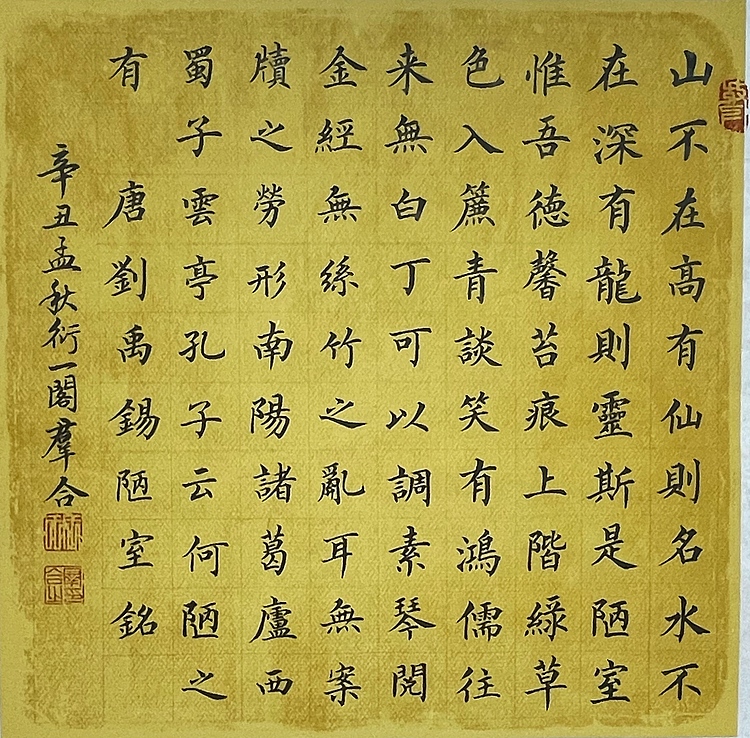 山不在高有仙則名水不
在深有龍則靈斯是陋室
惟吾德馨苔痕上階綠草
色入簾青談笑有鴻儒往
来無白丁可以調素琴閱
金經無絲竹之亂耳無案
牘之勞形南陽諸葛廬西
蜀子雲亭孔子云何陋之
有 唐劉禹錫陋室銘
辛丑孟秋衍一閣羣合